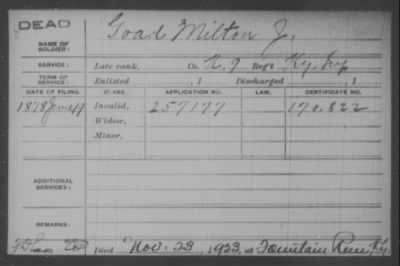 DEAD
Goad Milton J.
NAME OF SOLDIER:
SERVICE: Late rank, Co. K. 9 Reg't Ky. Inf.
TERM OF SERVICE: Enlisted , 1 Discharged , 1
DATE OF FILING. CLASS. APPLICATION NO. LAW. CERTIFICATE NO.
1878 June 19 Invalid, 257177 170.822
Widow,
Minor,
ADDITIONAL SERVICES:
REMARKS:
Died Nov. 23, 1923, at Fountain Run, Ky.